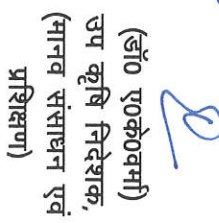 (डॉ0 ए0के0वर्मा)
उप कृषि निदेशक,
(मानव संसाधन एवं
प्रशिक्षण)